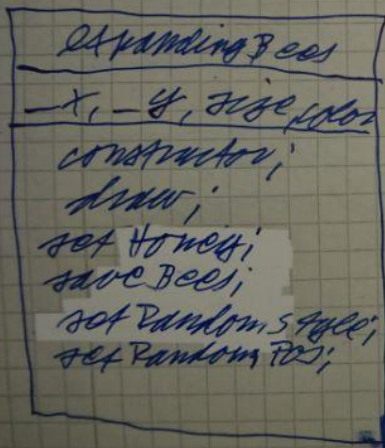 expandingBees
_x, _y, size, color
constructor;
draw;
set Honey;
save Bees;
set Random Style;
set Random Pos;